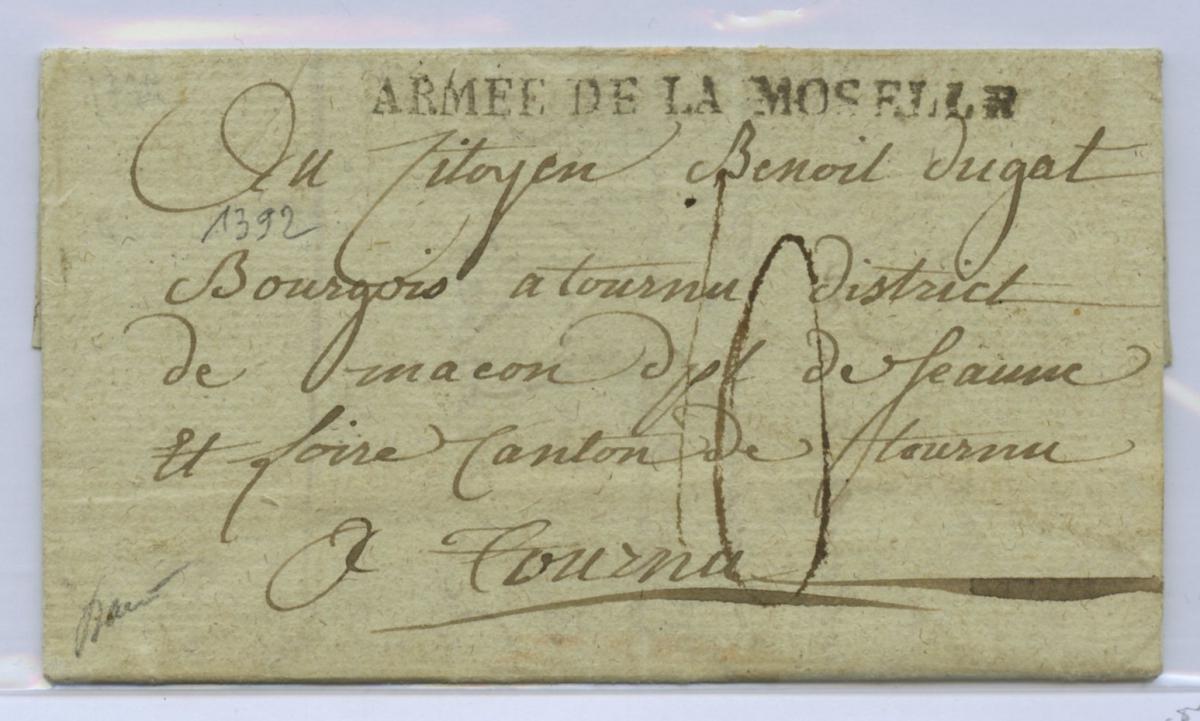 ARMÉE DE LA MOSELLE
Au Citoyen Benoit dugat
1392
Bourgois a tournu district
de macon dpt de Seaune
Et Loire Canton de tournu
A Tournu
10